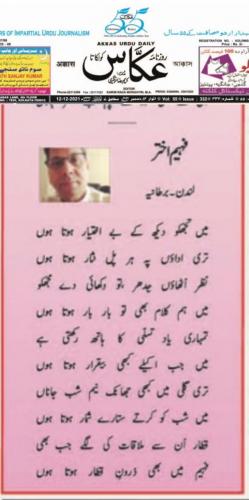 RS OF IMPARTIAL URDU JOURNALISM
AKKAS URDU DAILY
روزنامہ
عکاس
کولکاتا
आक्कास
আক্কাস
EDITOR
KARIM RAZA MONGHYRI, M.A.
12-12-2021
فہیم اختر
لندن-برطانیہ
میں تجھکو دیکھ کے بے اختیار ہوتا ہوں
تری اداؤں پہ ہر پل نثار ہوتا ہوں
نظر اٹھاؤں جدھر، تو دکھائی دے مجھکو
میں ہم کلام بھی تو بار بار ہوتا ہوں
تمہاری یاد تسلی کا ہاتھ رکھتی ہے
میں جب اکیلے کبھی بیقرار ہوتا ہوں
تری گلی میں کبھی جھانک نیم شب جاناں
میں شب کو کرتے ستارے شمار ہوتا ہوں
قطار اُن سے ملاقات کی لگے جب بھی
فہیم میں بھی درونِ قطار ہوتا ہوں